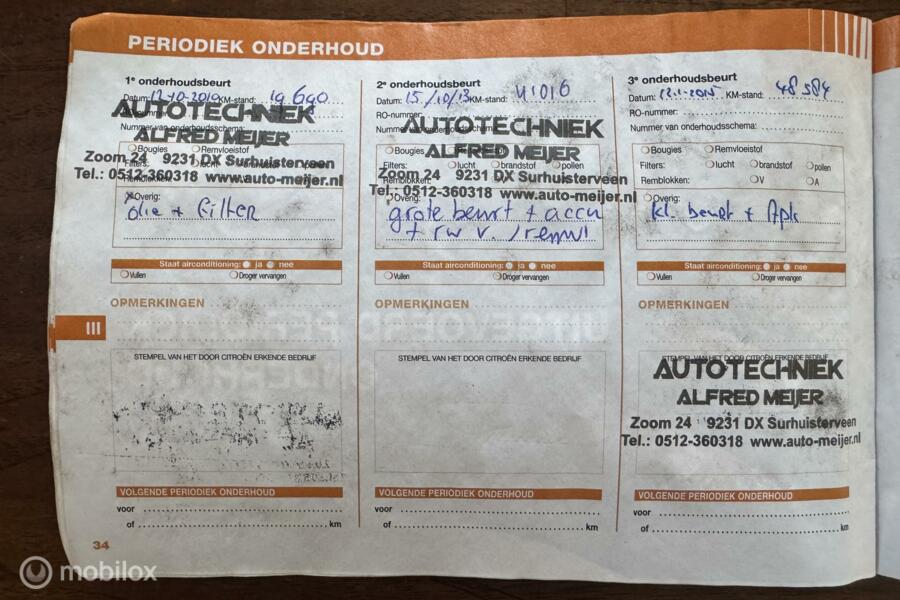 PERIODIEK ONDERHOUD
1e onderhoudsbeurt
Datum: 12-10-2010 KM-stand: 19690
AUTOTECHNIEK
Nummer van onderhoudsschema:
ALFRED MEIJER
Bougies Remvloeistof
Zoom 24 9231 DX Surhuisterveen
Filters:
Tel.: 0512-360318 www.auto-meijer.nl
Remblokken:
Overig:
olie + Filter
Staat airconditioning: ja nee
Vullen Droger vervangen
OPMERKINGEN
STEMPEL VAN HET DOOR CITROËN ERKENDE BEDRIJF
VOLGENDE PERIODIEK ONDERHOUD
voor
of km
2e onderhoudsbeurt
Datum: 15/10/13 KM-stand: 41016
RO-nummer:
AUTOTECHNIEK
ALFRED MEIJER
Bougies
Filters: lucht brandstof pollen
Zoom 24 9231 DX Surhuisterveen
Remblokken:
Tel.: 0512-360318 www.auto-meijer.nl
Overig:
grote beurt + accu
+ rw v.
Staat airconditioning: ja nee
Vullen Droger vervangen
OPMERKINGEN
STEMPEL VAN HET DOOR CITROËN ERKENDE BEDRIJF
VOLGENDE PERIODIEK ONDERHOUD
voor
of km
3e onderhoudsbeurt
Datum: KM-stand: 48584
RO-nummer:
Nummer van onderhoudsschema:
Bougies Remvloeistof
Filters: lucht brandstof pollen
Remblokken: V A
Overig:
kl. beurt + Apk
Staat airconditioning: ja nee
Vullen Droger vervangen
OPMERKINGEN
STEMPEL VAN HET DOOR CITROËN ERKENDE BEDRIJF
AUTOTECHNIEK
ALFRED MEIJER
Zoom 24 9231 DX Surhuisterveen
Tel.: 0512-360318 www.auto-meijer.nl
VOLGENDE PERIODIEK ONDERHOUD
voor
of km
III
34
mobilox